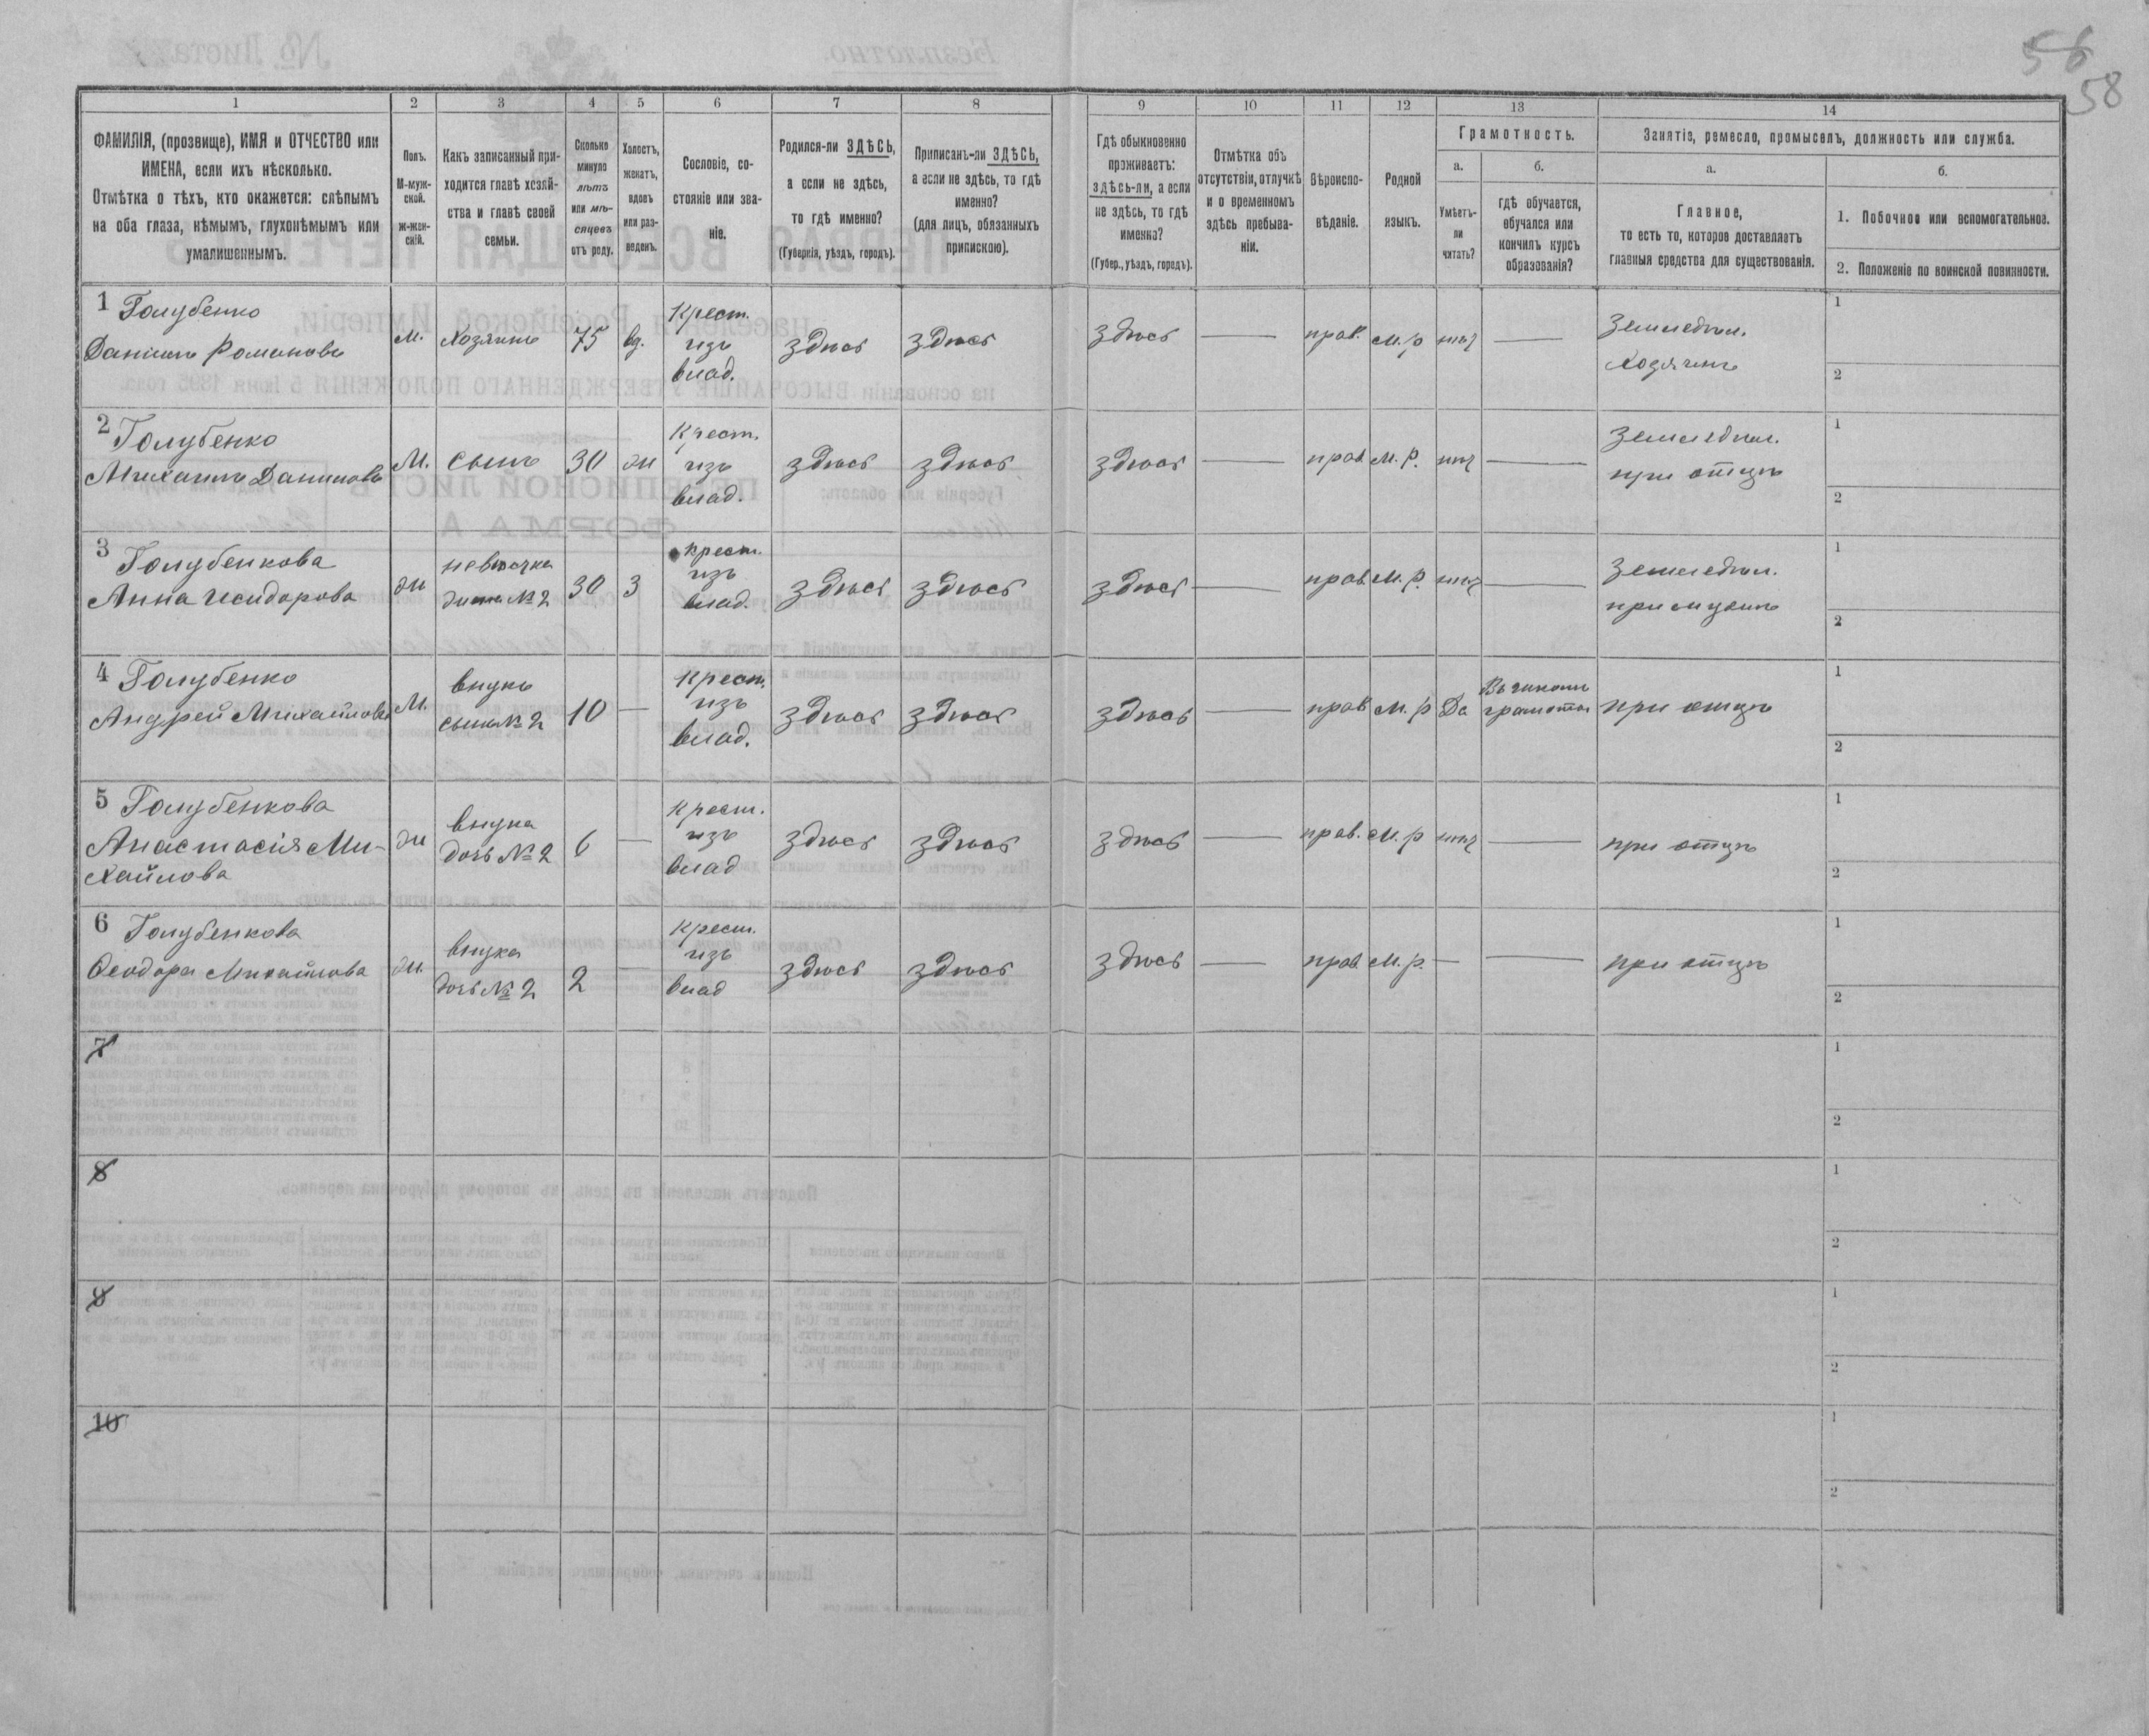 56
58
1
2
3
4
5
6
7
8
9
10
11
12
13
14
ФАМИЛІЯ, (прозвище), ИМЯ и ОТЧЕСТВО или
ИМЕНА, если ихъ нѣсколько.
Отмѣтка о тѣхъ, кто окажется: слѣпымъ
на оба глаза, нѣмымъ, глухонѣмымъ или
умалишеннымъ.
Полъ.
М-муж-
ской.
Ж-жен-
скій.
Какъ записанный при-
ходится главѣ хозяй-
ства и главѣ своей
семьи.
Сколько
минуло
лѣтъ
или мѣ-
сяцевъ
отъ роду.
Холостъ,
женатъ,
вдовъ
или раз-
веденъ.
Сословіе, со-
стояніе или зва-
ніе.
Родился-ли ЗДѢСЬ,
а если не здѣсь,
то гдѣ именно?
(Губернія, уѣздъ, городъ).
Приписанъ-ли ЗДѢСЬ,
а если не здѣсь, то гдѣ
именно?
(для лицъ, обязанныхъ
припискою).
Гдѣ обыкновенно
проживаетъ:
здѣсь-ли, а если
не здѣсь, то гдѣ
именно?
(Губер., уѣздъ, городъ).
Отмѣтка объ
отсутствіи, отлучкѣ
и о временномъ
здѣсь пребыва-
ніи.
Вѣроиспо-
вѣданіе.
Родной
языкъ.
Грамотность.
а.
Умѣетъ-
ли
читать?
б.
гдѣ обучается,
обучался или
кончилъ курсъ
образованія?
Занятіе, ремесло, промыселъ, должность или служба.
а.
Главное,
то есть то, которое доставляетъ
главныя средства для существованія.
б.
1. Побочное или вспомогательное.
2. Положеніе по воинской повинности.
1 Голубенко
Даніилъ Романовъ
М.
Хозяинъ
75
вд.
Крест.
изъ
влад.
здѣсь
здѣсь
здѣсь
прав.
М. р
нѣт
Земледѣл.
Хозяинъ
1
2
2 Голубенко
Михаилъ Даниловъ
М.
сынъ
30
жн
Крест.
изъ
влад.
здѣсь
здѣсь
здѣсь
прав
М. р.
нѣт
Земледѣл.
при отцѣ
1
2
3 Голубенкова
Анна Исидорова
жн
невѣстка
жена № 2
30
З
Крест.
изъ
влад.
здѣсь
здѣсь
здѣсь
прав.
М. р.
нѣт
Земледѣл.
при мужѣ
1
2
4 Голубенко
Андрей Михайловъ
М.
внукъ
сынъ № 2
10
Крест.
изъ
влад.
здѣсь
здѣсь
здѣсь
прав
М. р
Да
грамоты
при отцѣ
1
2
5 Голубенкова
Анастасія Ми-
хайлова
жн
внука
дочь № 2
6
Крест.
изъ
влад
здѣсь
здѣсь
здѣсь
прав.
М. р
нѣт
при отцѣ
1
2
6 Голубенкова
Ѳеодора Михайлова
жн.
внука
дочь № 2
2
Крест.
изъ
влад
здѣсь
здѣсь
здѣсь
прав.
М. р.
при отцѣ
1
2
7
1
2
8
1
2
9
1
2
10
1
2